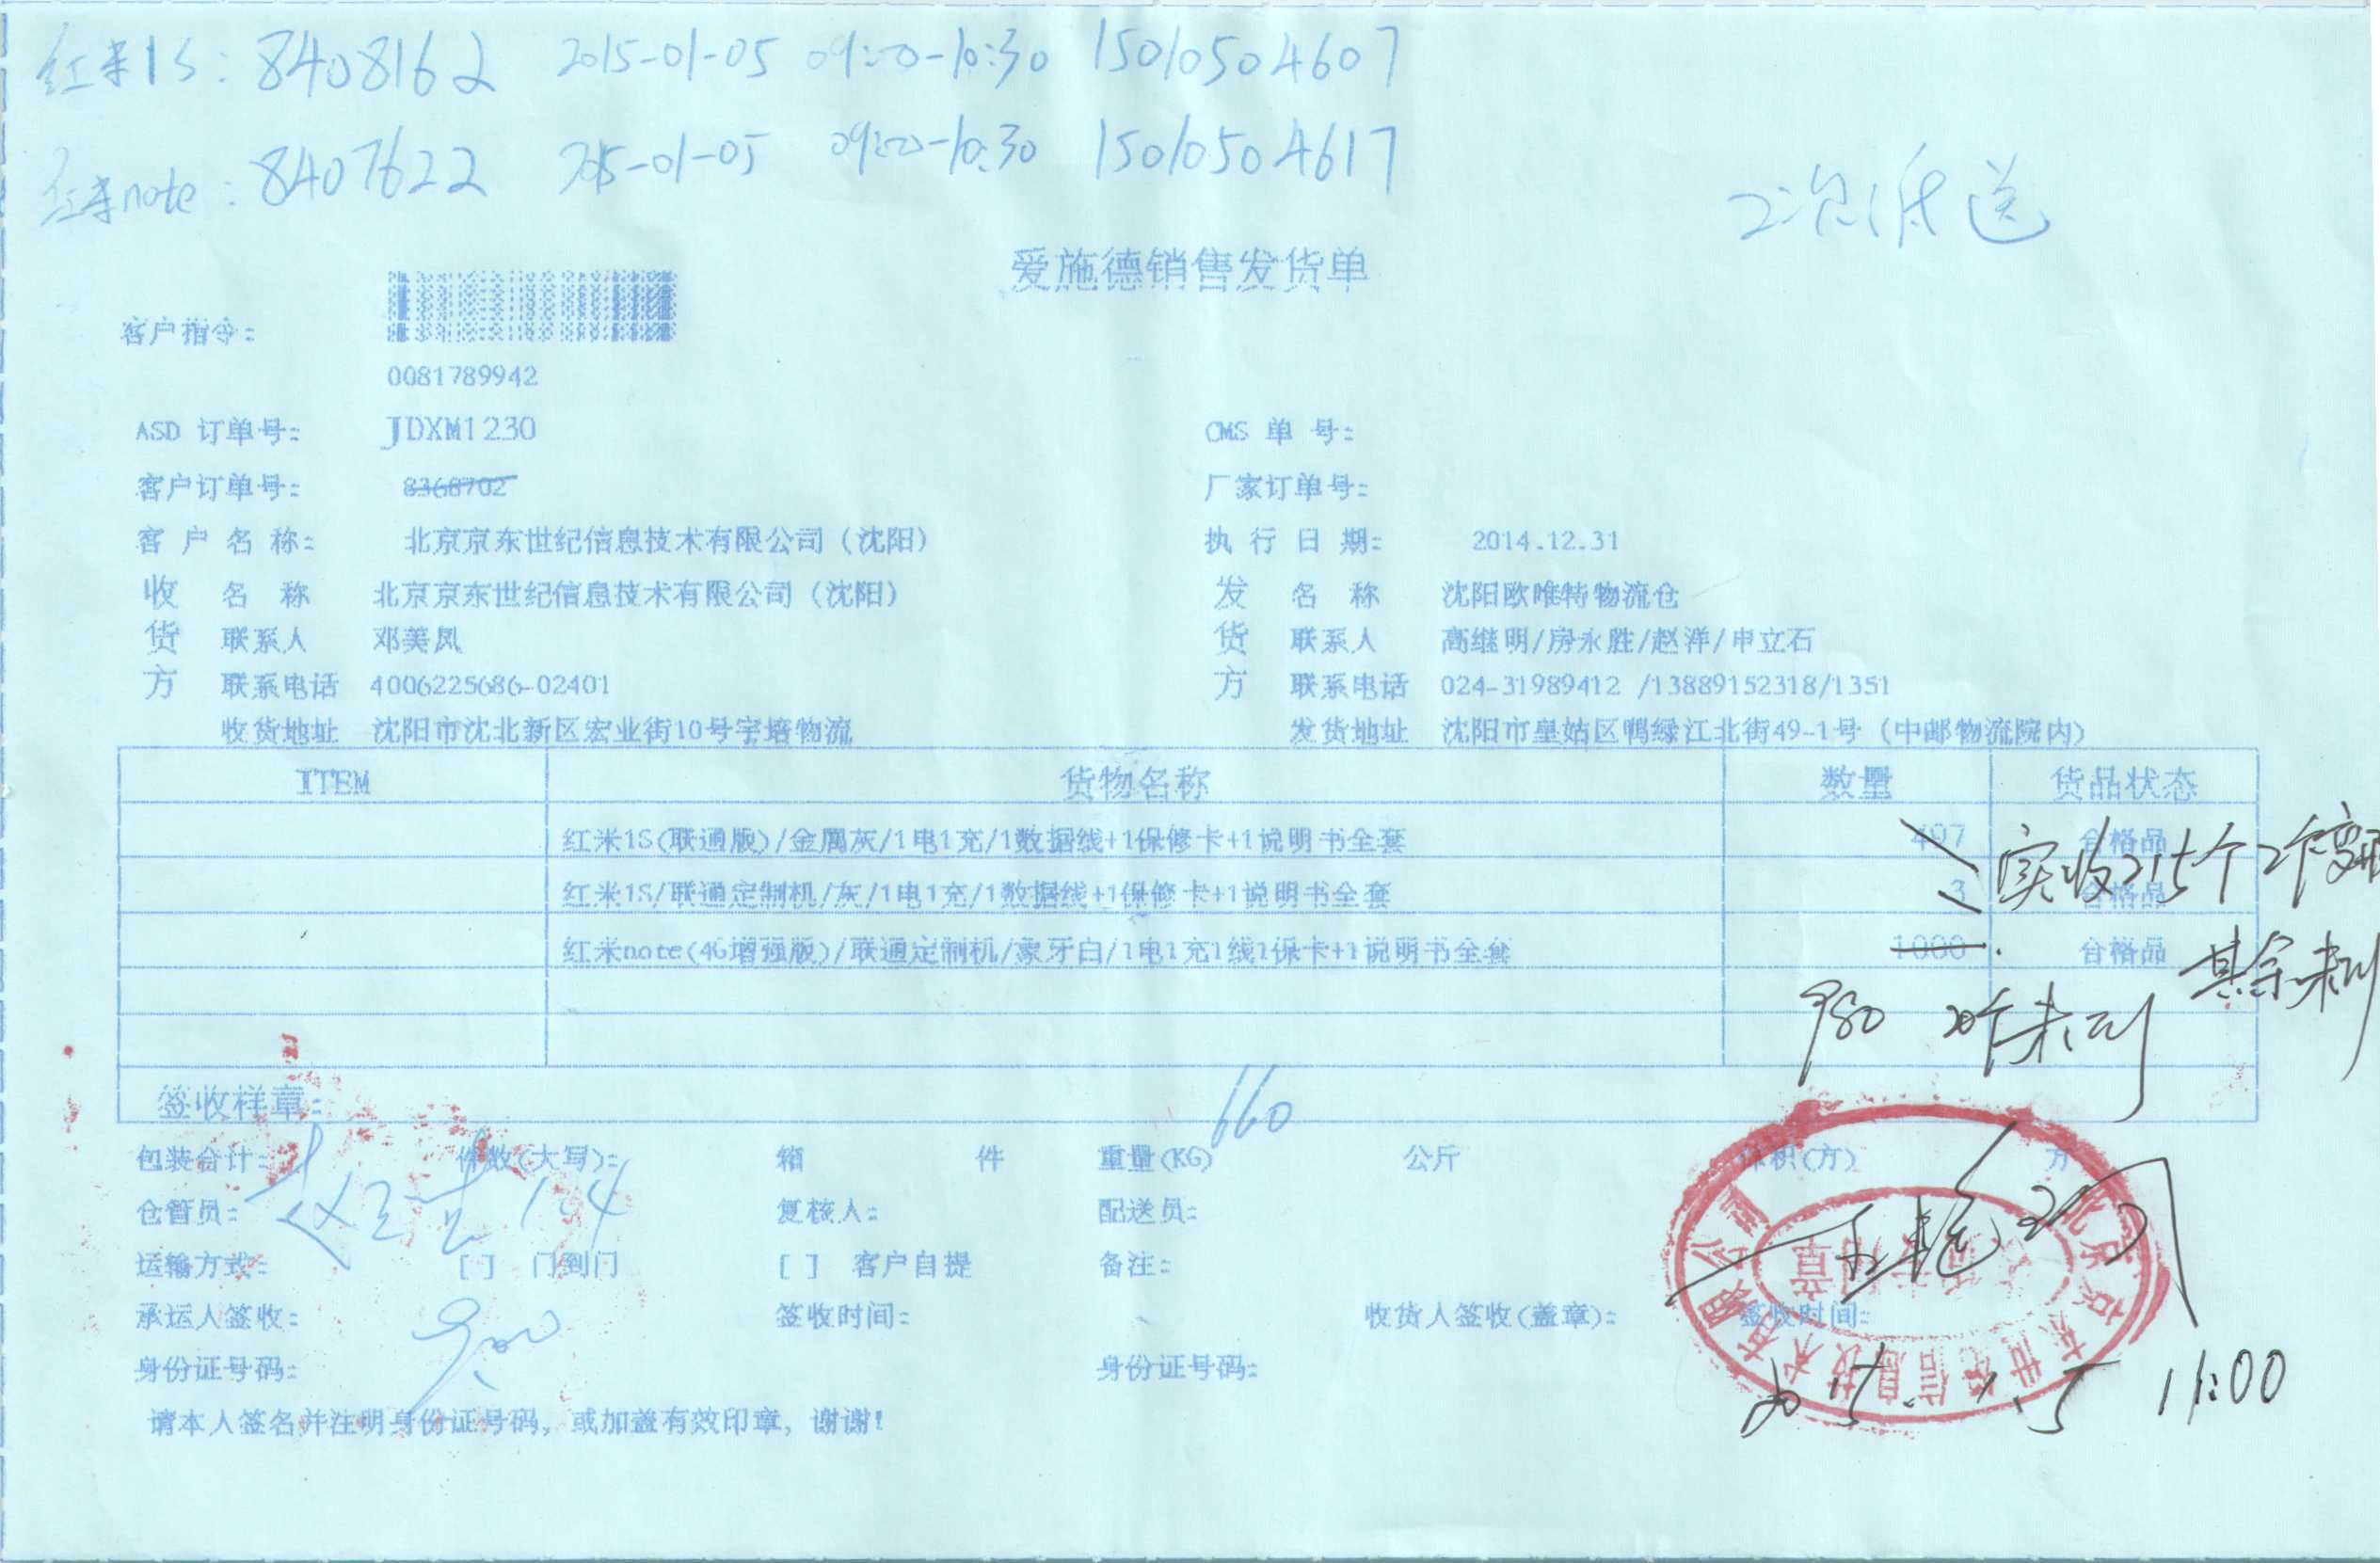 红米1S: 8408162 2015-01-05 09:00-10:30 15010504607
红米note: 8407622 2015-01-05 09:00-10:30 15010504617
2次派送
爱施德销售发货单
客户指令:
0081789942
ASD 订单号: JDXM1230 CMS 单 号:
客户订单号: 8368702 厂家订单号:
客 户 名 称: 北京京东世纪信息技术有限公司（沈阳） 执 行 日 期: 2014.12.31
收 名 称 北京京东世纪信息技术有限公司（沈阳） 发 名 称 沈阳欧唯特物流仓
货 联系人 邓美凤 货 联系人 高继明/房永胜/赵洋/申立石
方 联系电话 4006225686-02401 方 联系电话 024-31989412 /13889152318/1351
收货地址 沈阳市沈北新区宏业街10号宇培物流 发货地址 沈阳市皇姑区鸭绿江北街49-1号（中邮物流院内）
ITEM 货物名称 数量 货品状态
红米1S(联通版)/金属灰/1电1充/1数据线+1保修卡+1说明书全套 497 合格品
实收215个2个
红米1S/联通定制机/灰/1电1充/1数据线+1保修卡+1说明书全套 3 合格品
红米note(4G增强版)/联通定制机/象牙白/1电1充1线1保卡+1说明书全套 1000 合格品
其余未到
980 20个未到
签收样章:
660
包装合计: 件数(大写): 箱 件 重量(KG) 公斤 体积(方) 方
仓管员: 1.4 复核人: 配送员:
运输方式: [ ] 门到门 [ ] 客户自提 备注:
承运人签收: 签收时间: 收货人签收(盖章): 签收时间:
身份证号码: 身份证号码:
北京京东世纪信息技术有限公司
2015.1.5 11:00
请本人签名并注明身份证号码，或加盖有效印章，谢谢!